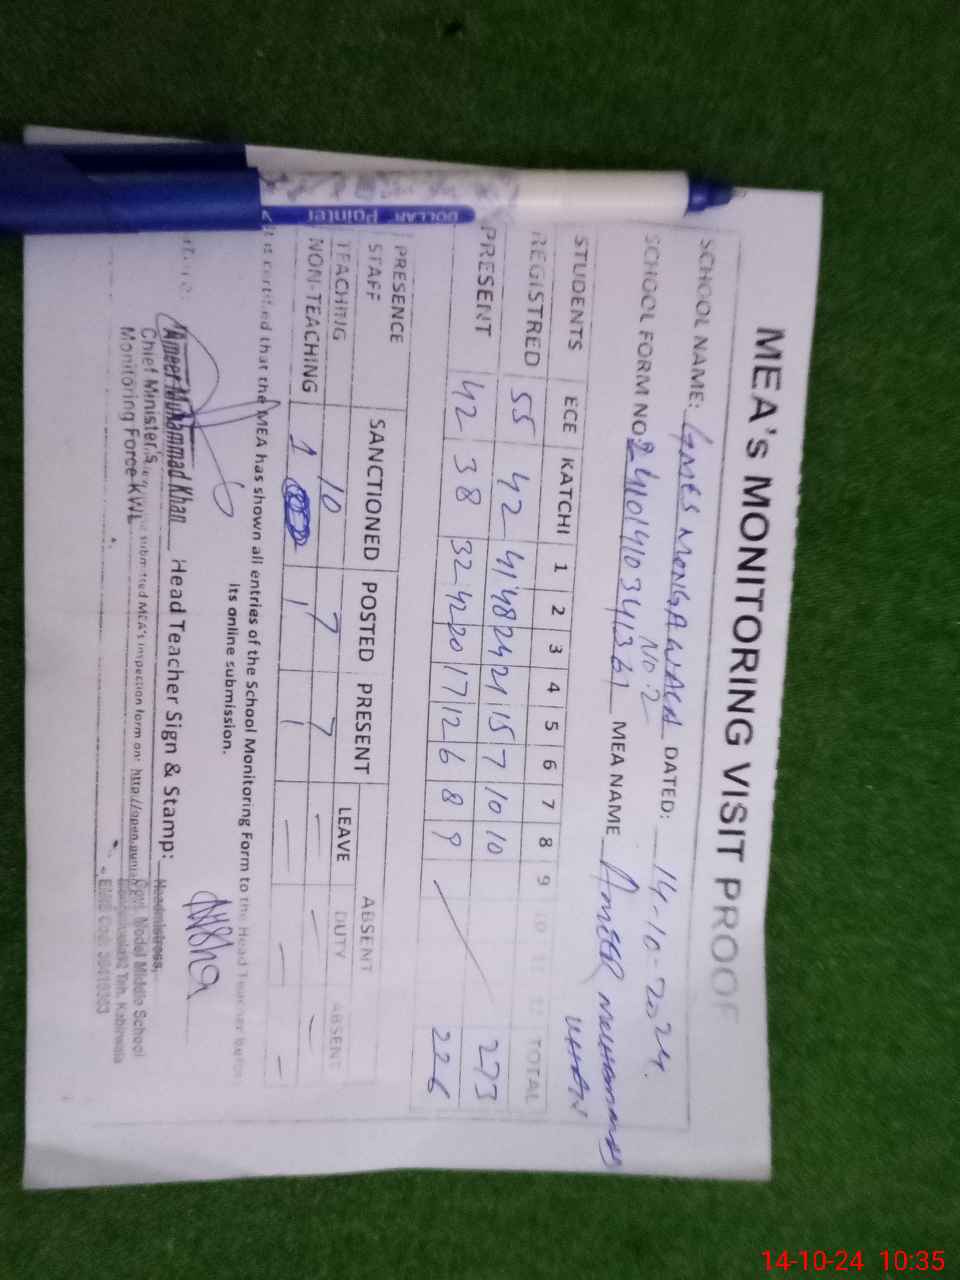 MEA's MONITORING VISIT PROOF
SCHOOL NAME: GMES MONGA WALA No.2 DATED: 14-10-2024.
SCHOOL FORM NO: MEA NAME AMEER MUHAMMAD KHAN
STUDENTS ECE KATCHI 1 2 3 4 5 6 7 8 9 10 11 12 TOTAL
REGISTRED 55 42 41 48 24 21 15 7 10 10 273
PRESENT 42 38 32 42 20 17 12 6 8 9 226
PRESENCE SANCTIONED POSTED PRESENT ABSENT
STAFF LEAVE DUTY ABSENT
TEACHING 10 7 7 — — —
NON-TEACHING 1 1 1 — — —
It is certified that the MEA has shown all entries of the School Monitoring Form to the Head Teacher before
its online submission.
Ameer Muhammad Khan Head Teacher Sign & Stamp: Headmistress,
Chief Minister,s submitted MEA's inspection form on: Govt. Model Middle School
Monitoring Force KWL Teh. Kabirwala
EMIS Code
DOLLAR Pointer
14-10-24 10:35